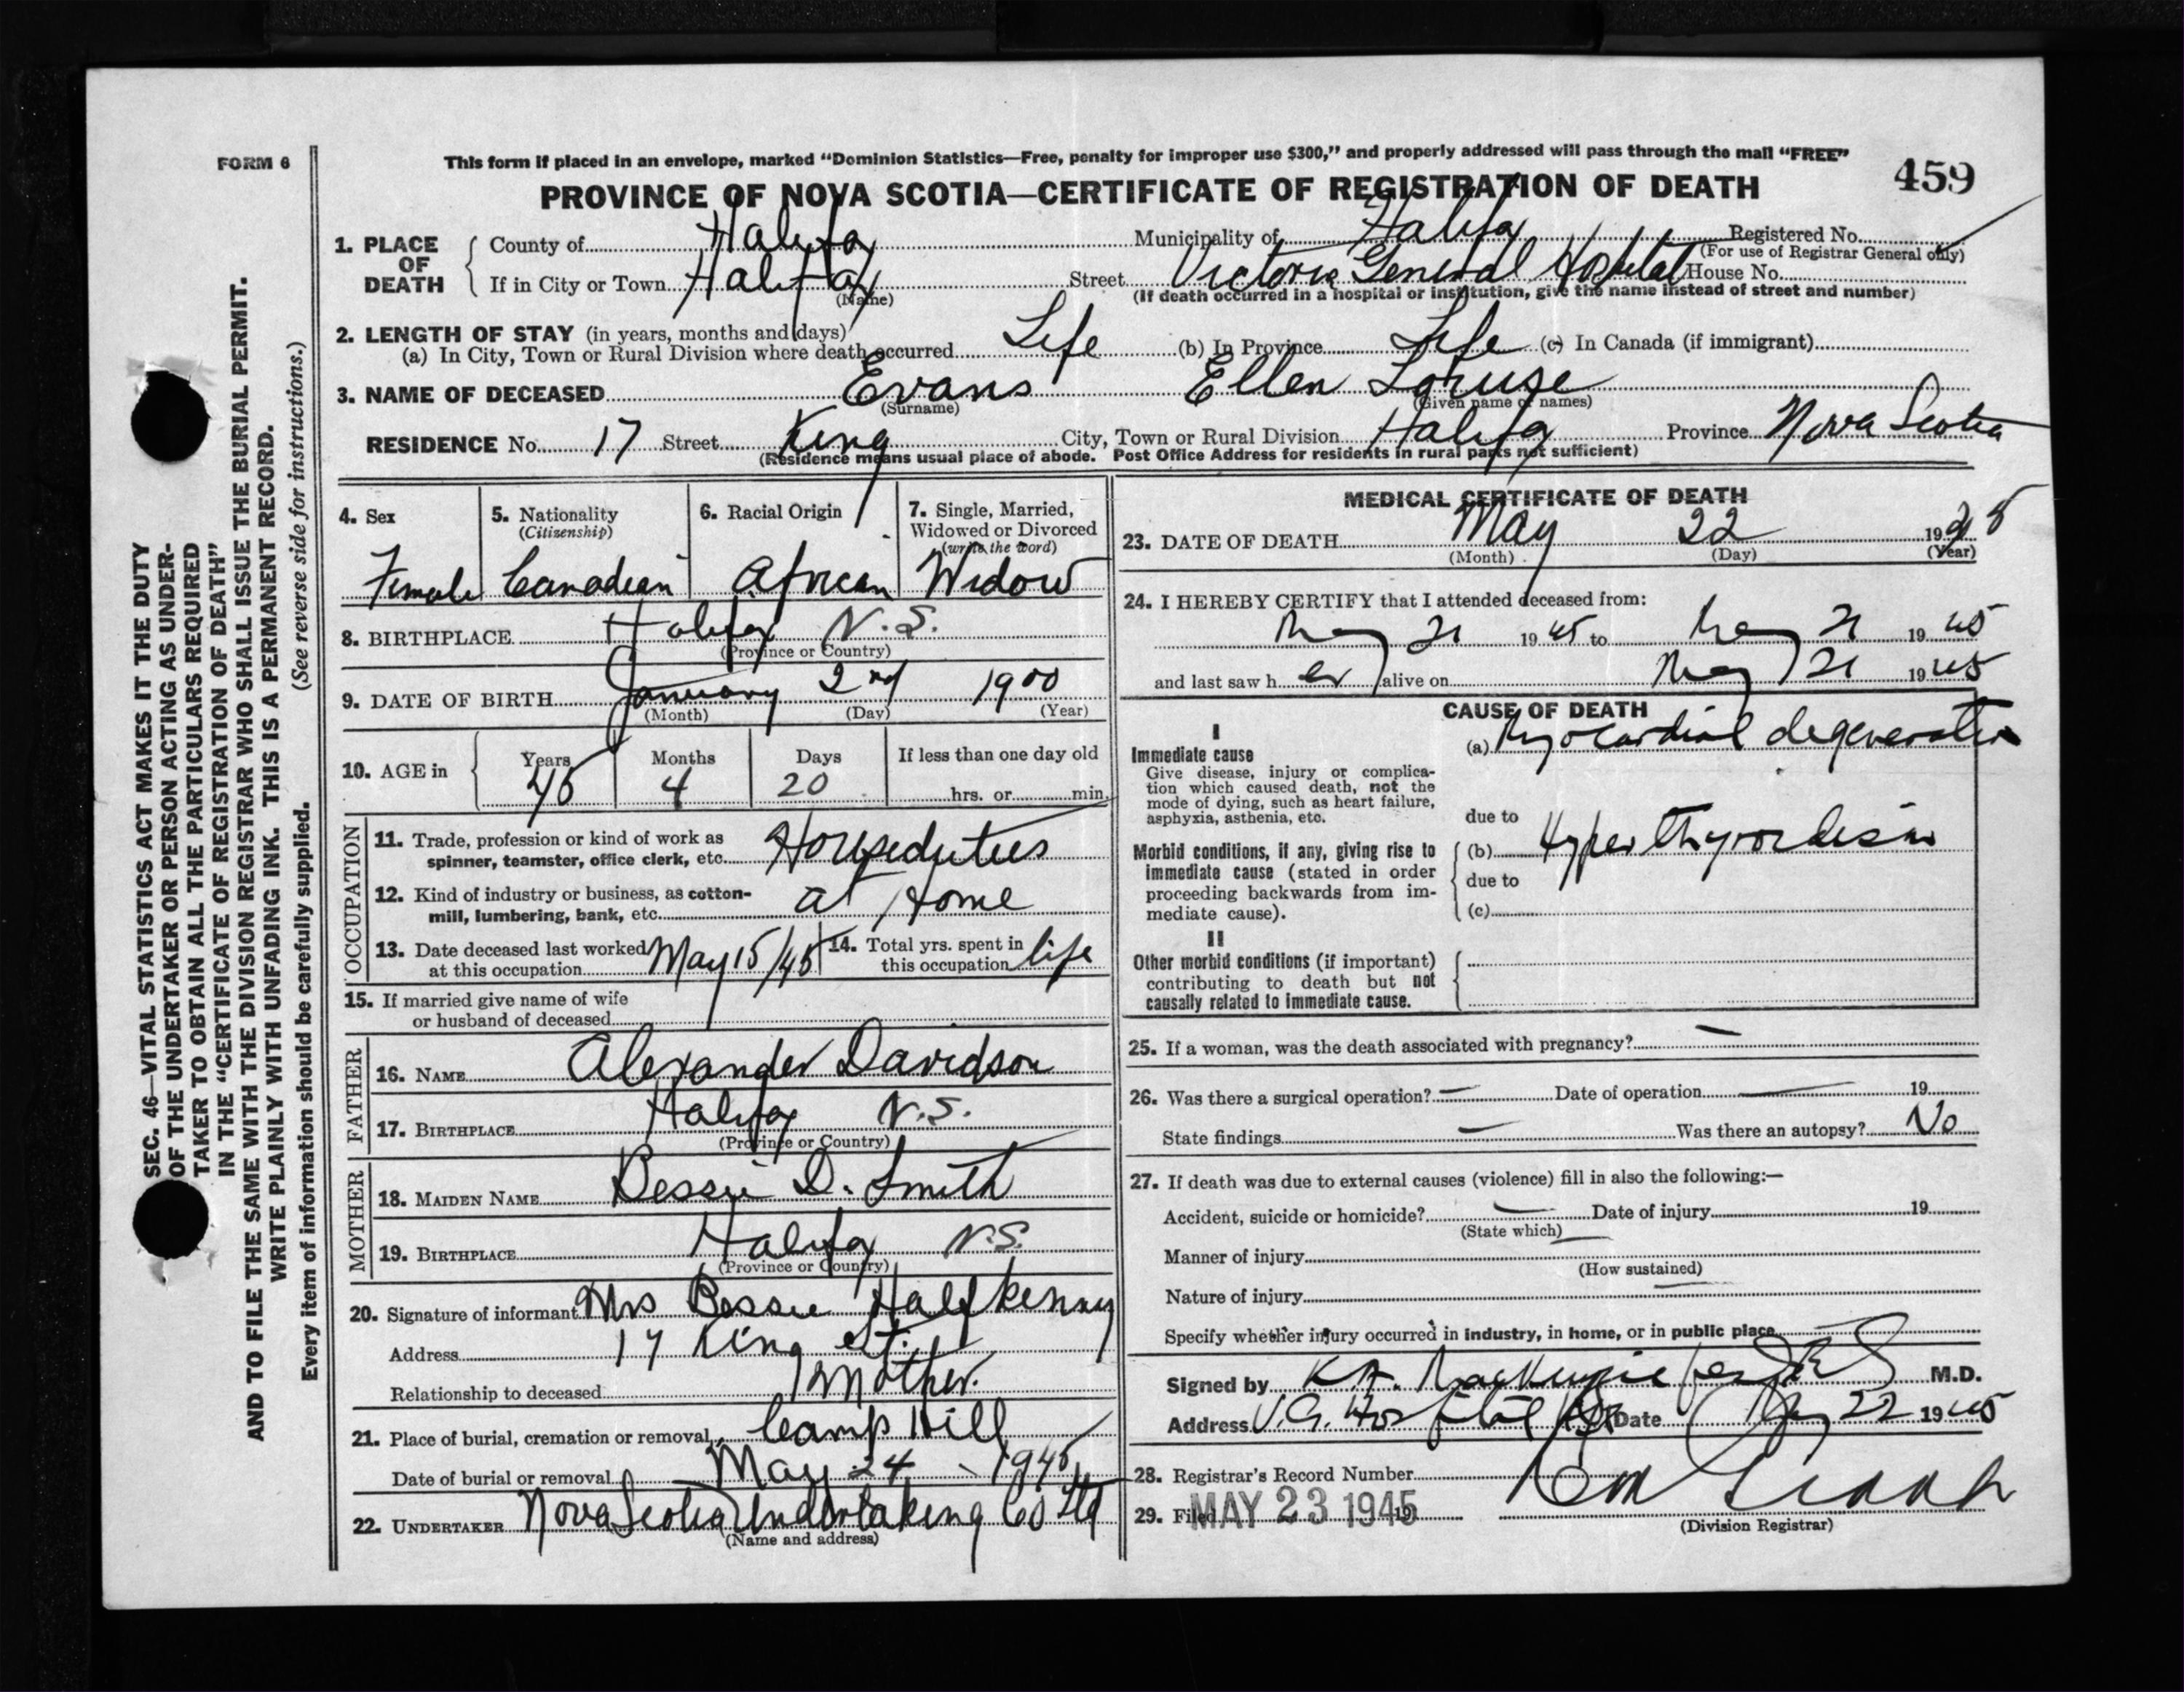 FORM 6
This form if placed in an envelope, marked “Dominion Statistics—Free, penalty for improper use $300,” and properly addressed will pass through the mail “FREE”
459
PROVINCE OF NOVA SCOTIA—CERTIFICATE OF REGISTRATION OF DEATH
1. PLACE OF DEATH County of Halifax Municipality of Halifax Registered No.
(For use of Registrar General only)
If in City or Town Halifax Street Victoria General Hospital House No.
(Name) (If death occurred in a hospital or institution, give the name instead of street and number)
2. LENGTH OF STAY (in years, months and days)
(a) In City, Town or Rural Division where death occurred Life (b) In Province Life (c) In Canada (if immigrant)
3. NAME OF DECEASED Evans Ellen Louise
(Surname) (Given name or names)
RESIDENCE No. 17 Street King City, Town or Rural Division Halifax Province Nova Scotia
(Residence means usual place of abode. Post Office Address for residents in rural parts not sufficient)
4. Sex 5. Nationality (Citizenship) 6. Racial Origin 7. Single, Married, Widowed or Divorced (write the word)
Female Canadian African Widow
8. BIRTHPLACE Halifax N.S.
(Province or Country)
9. DATE OF BIRTH January 2nd 1900
(Month) (Day) (Year)
10. AGE in Years Months Days If less than one day old
45 4 20 hrs. or min.
OCCUPATION
11. Trade, profession or kind of work as
spinner, teamster, office clerk, etc. Houseduties
12. Kind of industry or business, as cotton-
mill, lumbering, bank, etc. at Home
13. Date deceased last worked at this occupation May 15/45 14. Total yrs. spent in this occupation life
15. If married give name of wife
or husband of deceased
FATHER
16. NAME Alexander Davidson
17. BIRTHPLACE Halifax N.S.
(Province or Country)
MOTHER
18. MAIDEN NAME Bessie D. Smith
19. BIRTHPLACE Halifax N.S.
(Province or Country)
20. Signature of informant Mrs Bessie Halfkenny
Address 17 King St.
Relationship to deceased Mother.
21. Place of burial, cremation or removal Camp Hill
Date of burial or removal May 24 1945
22. UNDERTAKER Nova Scotia Undertaking Co Ltd
(Name and address)
MEDICAL CERTIFICATE OF DEATH
23. DATE OF DEATH May 22 1945
(Month) (Day) (Year)
24. I HEREBY CERTIFY that I attended deceased from:
May 21 1945 to May 21 1945
and last saw her alive on May 21 1945
CAUSE OF DEATH
I
Immediate cause (a) Myocardial degeneration
Give disease, injury or complica-
tion which caused death, not the
mode of dying, such as heart failure,
asphyxia, asthenia, etc.
due to
Morbid conditions, if any, giving rise to (b) Hyperthyroidism
immediate cause (stated in order due to
proceeding backwards from im-
mediate cause). (c)
II
Other morbid conditions (if important)
contributing to death but not
causally related to immediate cause.
25. If a woman, was the death associated with pregnancy? —
26. Was there a surgical operation? — Date of operation — 19
State findings — Was there an autopsy? No
27. If death was due to external causes (violence) fill in also the following:—
Accident, suicide or homicide? — Date of injury 19
(State which)
Manner of injury
(How sustained)
Nature of injury
Specify whether injury occurred in industry, in home, or in public place
Signed by K.A. MacKenzie per M.D.
Address V.G. Hospital Date May 22 1945
28. Registrar's Record Number
29. Filed MAY 23 1945 19
(Division Registrar)
SEC. 46—VITAL STATISTICS ACT MAKES IT THE DUTY
OF THE UNDERTAKER OR PERSON ACTING AS UNDER-
TAKER TO OBTAIN ALL THE PARTICULARS REQUIRED
IN THE “CERTIFICATE OF REGISTRATION OF DEATH”
AND TO FILE THE SAME WITH THE DIVISION REGISTRAR WHO SHALL ISSUE THE BURIAL PERMIT.
WRITE PLAINLY WITH UNFADING INK. THIS IS A PERMANENT RECORD.
Every item of information should be carefully supplied. (See reverse side for instructions.)